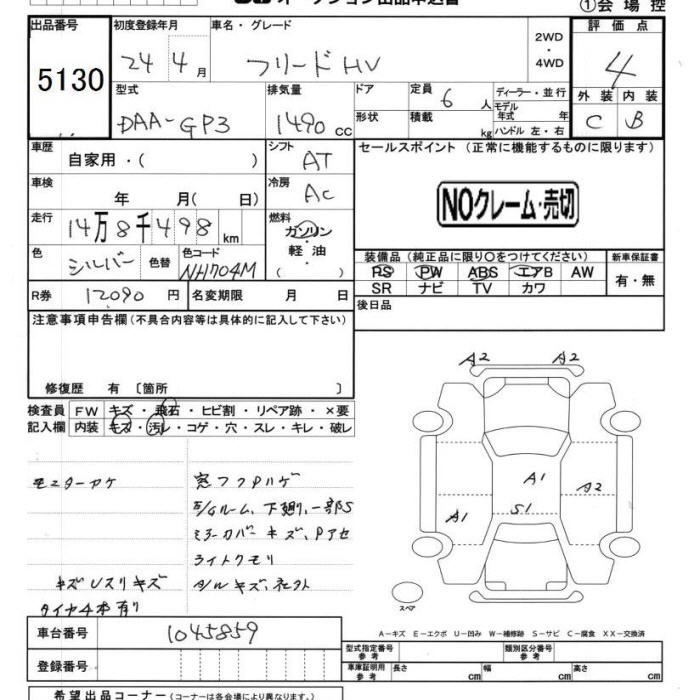 オークション出品申込書
①会場控
出品番号 初度登録年月 車名・グレード 2WD ・ 4WD 評価点
5130 24 4月 フリードHV 4
型式 排気量 ドア 定員 6人 ディーラー・並行 外装 内装
DAA-GP3 1490cc 形状 積載 kg モデル年式 年 C B
ハンドル 左・右
車歴 自家用・( ) シフト AT セールスポイント (正常に機能するものに限ります)
車検 年 月(日) 冷房 AC
NOクレーム・売切
走行 14万8千498km 燃料 ガソリン 軽・油 ( )
色 シルバー 色替 色コード NH704M
装備品 (純正品に限り○をつけてください) 新車保証書
PS PW ABS エアB AW 有・無
SR ナビ TV カワ
R券 12090円 名変期限 月 日 後日品
注意事項申告欄(不具合内容等は具体的に記入して下さい)
修復歴 有 〔箇所 〕
検査員 FW キズ・飛石・ヒビ割・リペア跡・×要
記入欄 内装 キズ・汚レ・コゲ・穴・スレ・キレ・破レ
A2 A2
A1 A2
A1 S1
モニターヤケ 窓フクPハゲ
E/Gルーム、下廻り、一部S
ミラーカバーキズ、Pアセ
ライトクモリ
キズUスリキズ
タイヤ4本有り
スペア
A-キズ E-エクボ U-凹み W-補修跡 S-サビ C-腐食 XX-交換済
車台番号 1045859
型式指定番号 参考 類別区分番号 参考
登録番号 車庫証明用 参考 長さ cm 幅 cm 高さ cm
希望出品コーナー(コーナーは各会場により異なります。)